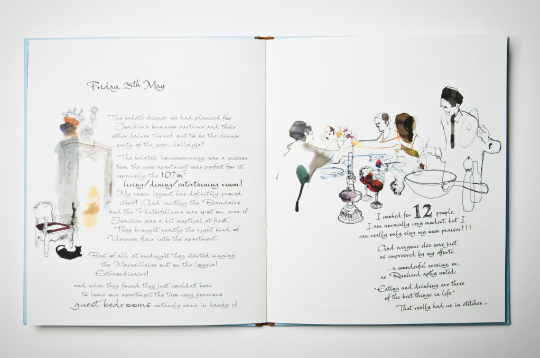 Friday, 25th May
The sedate dinner we had planned for
Joachim's business partners and their
other halves turned out to be the dinner
party of the year, hallelujah!
The belated housewarming was a success
too, the new apartment was perfect for it,
especially the 107m²
living/dining/entertaining room!
My room layout has definitely proved
itself! And inviting the
and the was spot on, even if
Joachim was a bit sceptical at first.
They brought exactly the right kind of
flair into the apartment.
Best of all, at midnight they started singing
the Marseillaise out on the loggia!
Extraordinaire!
and when they found they just couldn't bear
to leave our apartment the two very generous
guest bedrooms certainly came in handy :)
I cooked for 12 people.
I am normally very modest, but I
can really only sing my own praises!!!
And everyone else was just
as impressed by my efforts.
a wonderful evening, or,
as Reinhard aptly noted:
"Eating and drinking are three
of the best things in life."
That really had us in stitches...